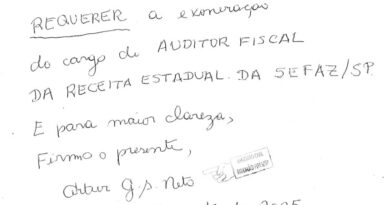 REQUERER a exoneração
do cargo de AUDITOR FISCAL
DA RECEITA ESTADUAL DA SEFAZ/SP.
E para maior clareza,
Firmo o presente,
Artur G. S. Neto